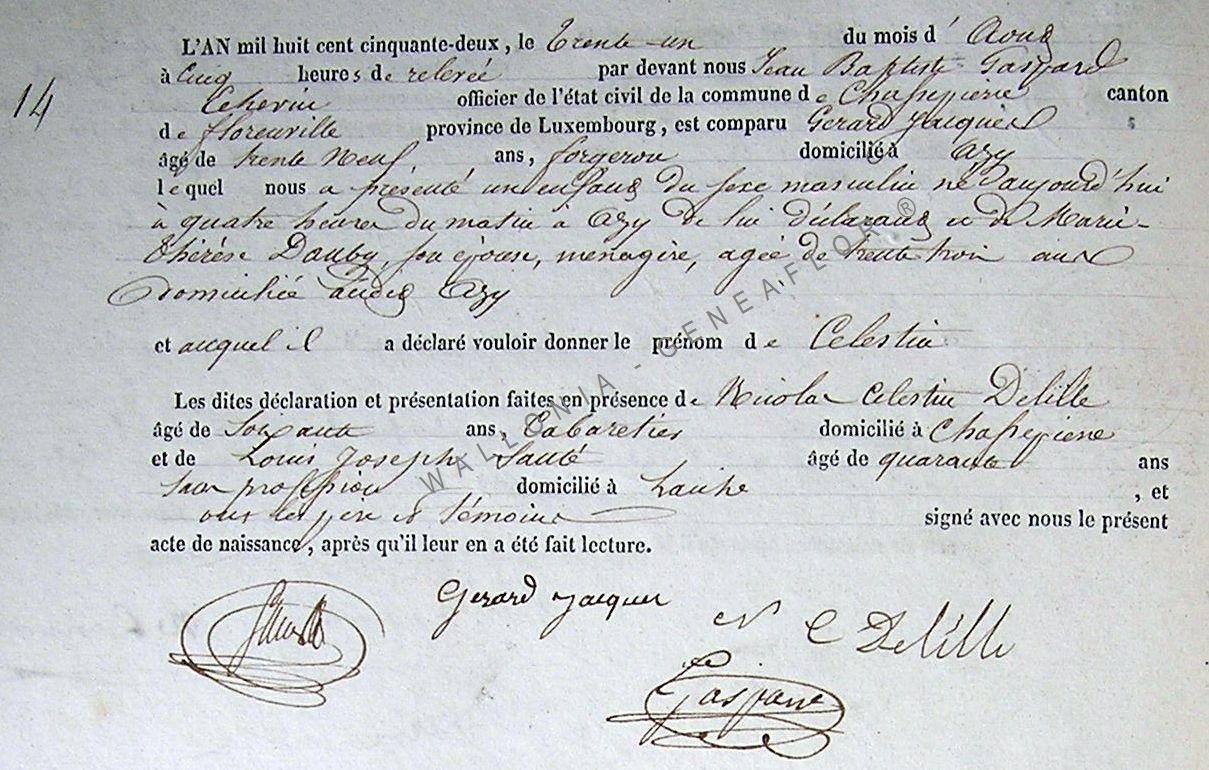 L'AN mil huit cent cinquante-deux, le trente un du mois d' Aout
à cinq heures de relevée par devant nous Jean Baptiste Gaspard
14
Echevin officier de l'état civil de la commune de Chassepierre canton
de florenville province de Luxembourg, est comparu Gerard Jacques
âgé de trente neuf ans, forgeron domicilié à Azy
lequel nous a présenté un enfant du sexe masculin né aujourd'hui
à quatre heures du matin à Azy de lui déclarant et de Marie-
Thérèse Dauby, son épouse, ménagère, agée de trente trois ans
domiciliée audit Azy
et auquel il a déclaré vouloir donner le prénom de Celestin
Les dites déclaration et présentation faites en présence de Nicolas Celestin Delille
âgé de soixante ans, Cabaretier domicilié à Chassepierre
et de Louis Joseph âgé de quarante ans
sans profession domicilié à Laiche , et
ont les père et témoins signé avec nous le présent
acte de naissance, après qu'il leur en a été fait lecture.
Gerard Jacques
N C Delille
Gaspard
WALLONIA - GENEAFLOR ®